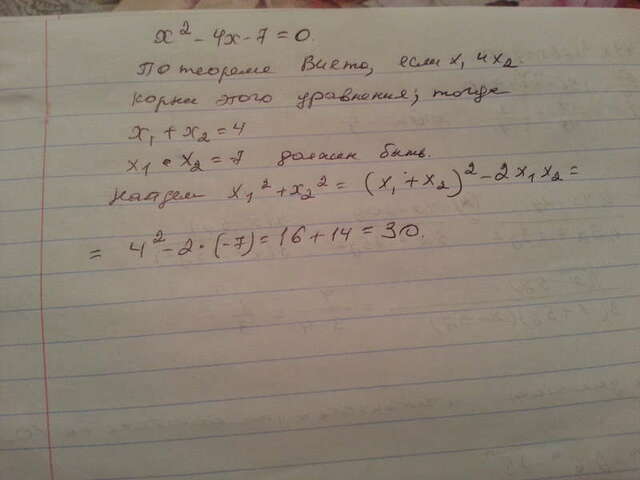 x² - 4x - 7 = 0.
По теореме Виета, если x₁ и x₂
корни этого уравнения, тогда
x₁ + x₂ = 4
x₁ • x₂ = 7 должен быть.
Найдем x₁² + x₂² = (x₁ + x₂)² - 2x₁x₂ =
= 4² - 2 • (-7) = 16 + 14 = 30.